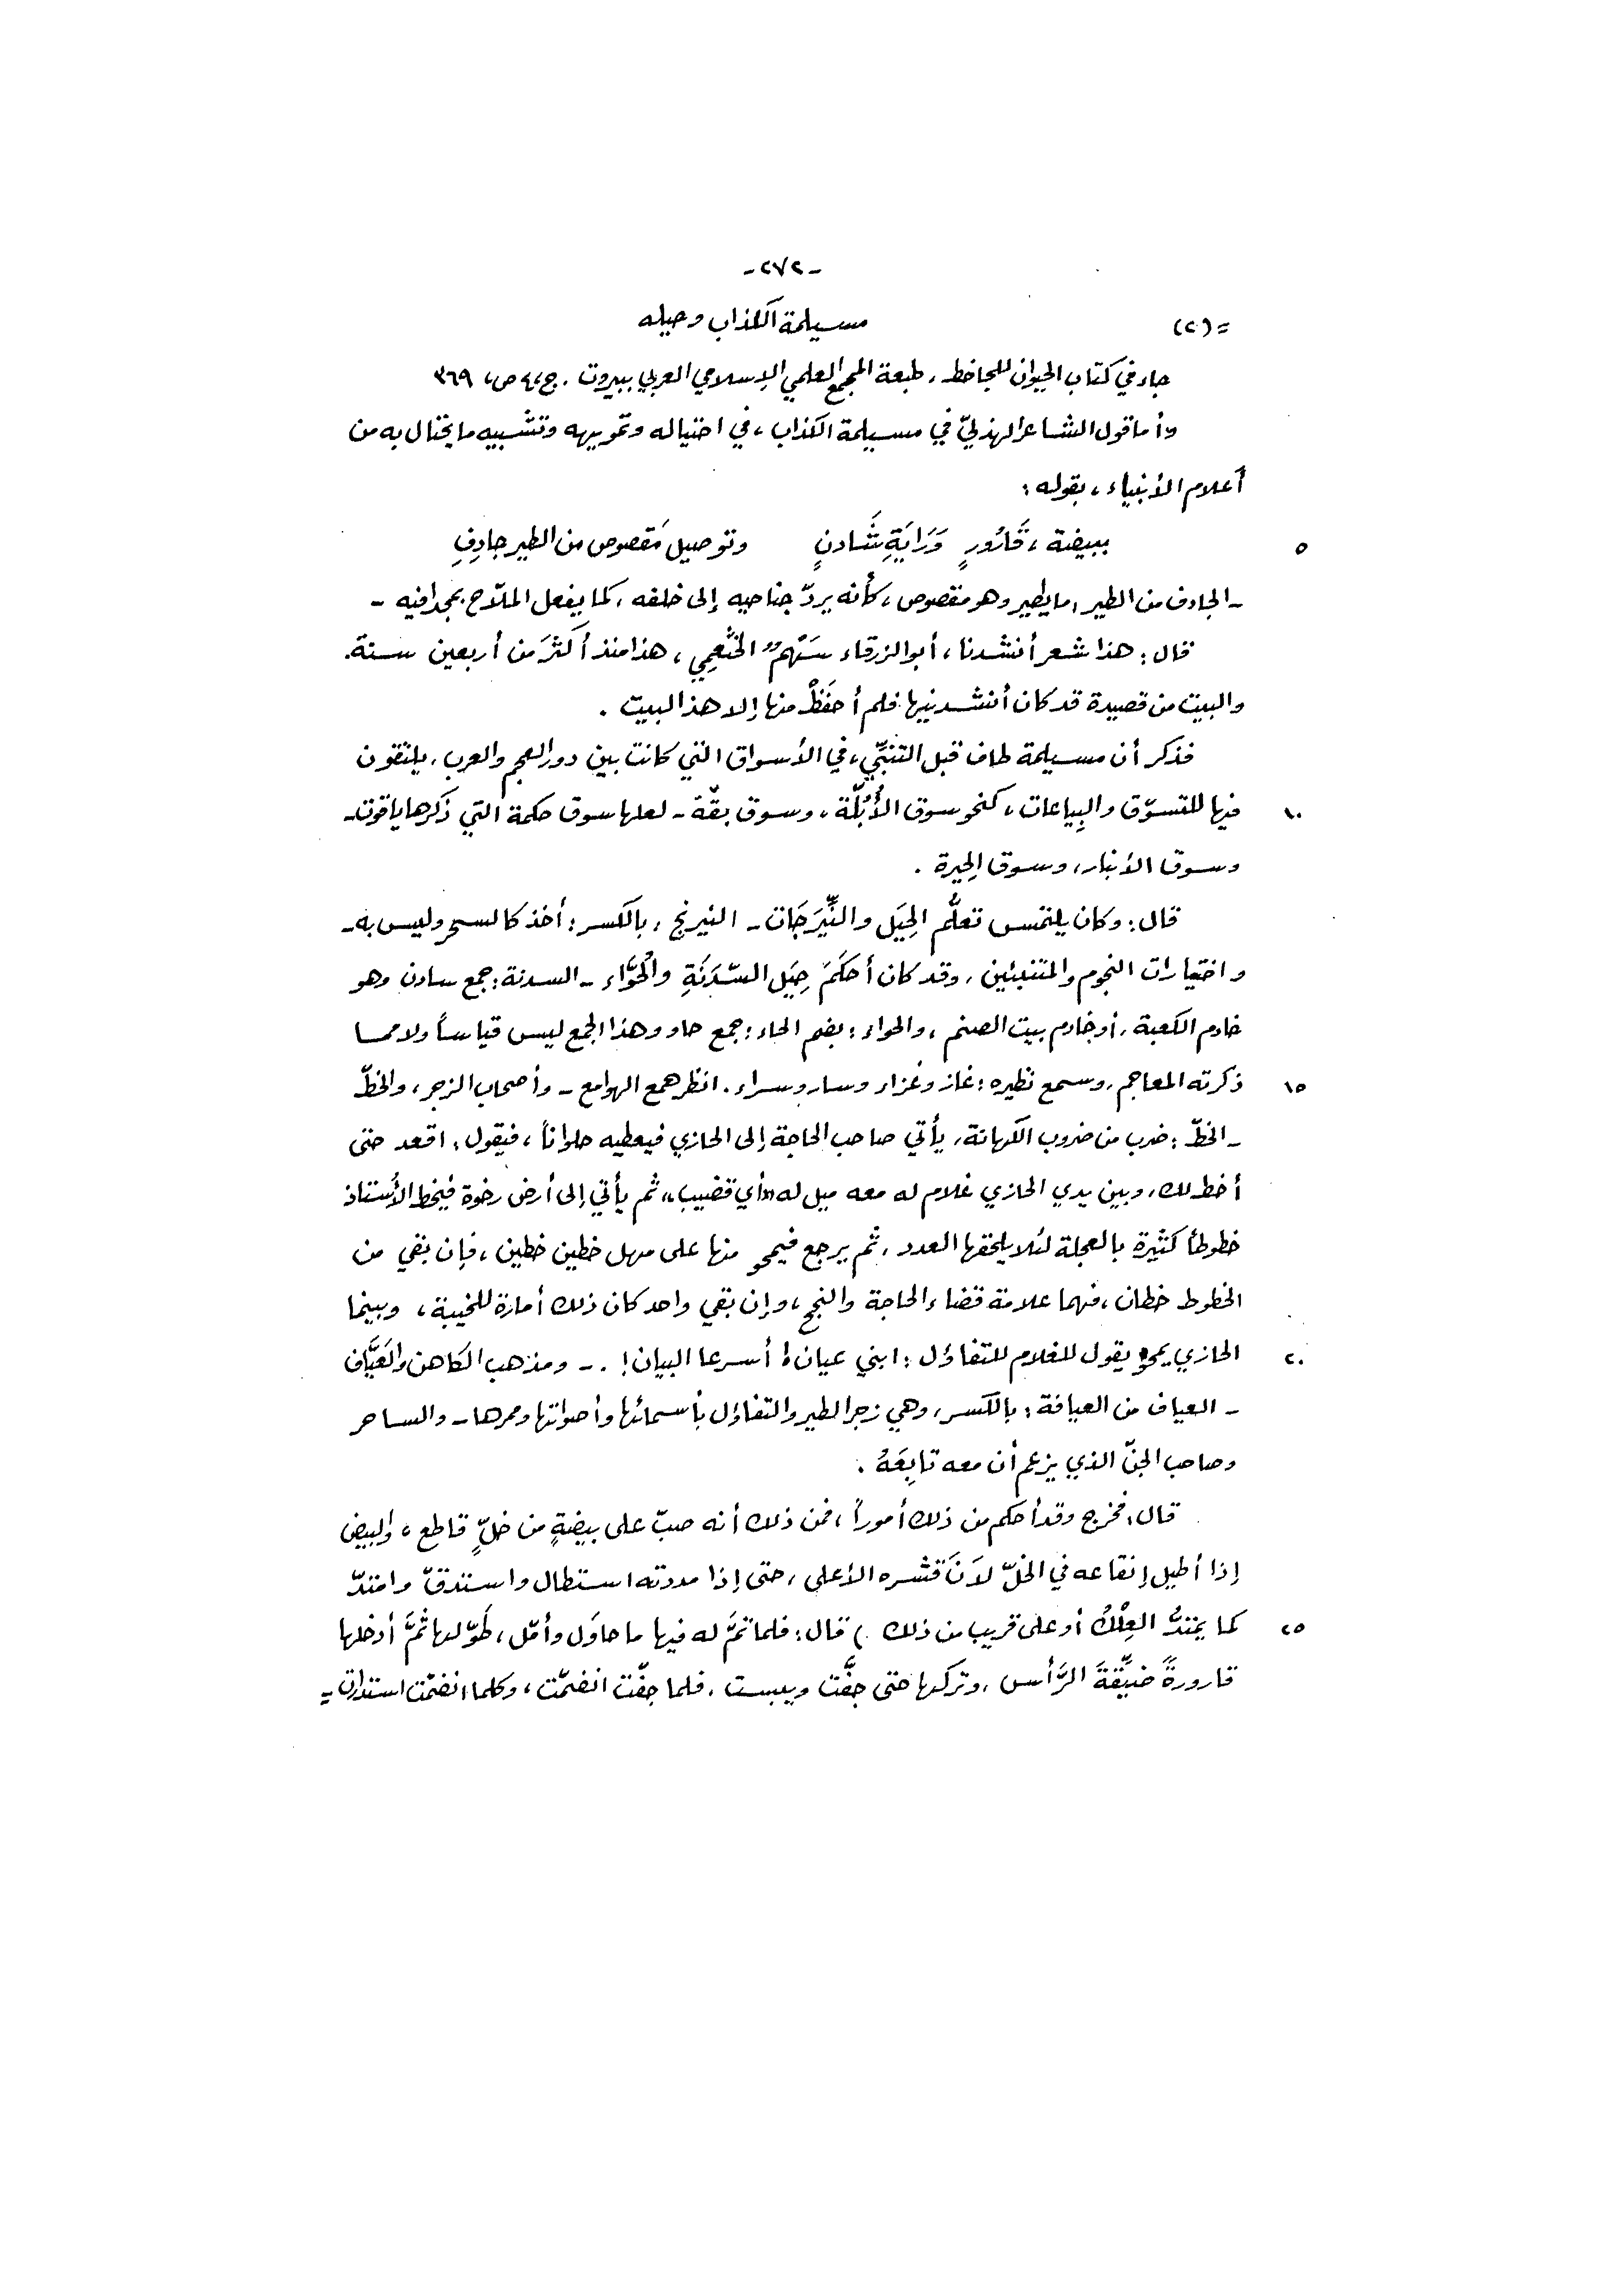 -٢٧٢-
= (٢) مسيلمة الكذاب وحيله
جاء في كتاب الحيوان للجاحظ، طبعة المجمع العلمي الإسلامي العربي ببيروت. ج،٤ ص، ٣٦٩
وأما قول الشاعر الهذليّ في مسيلمة الكذاب، في احتياله وتمويهه وتشبيه ما يحتال به من
أعلام الأنبياء، بقوله:
٥ ببيضة، قَارُورٍ وَرَايَةِ شَادنٍ وتوصيل مَقصوص من الطير جادِفِ
-الجادف من الطير، ما يطير وهو مقصوص، كأنه يردّ جناحيه إلى خلفه، كما يفعل الملّاح بمجدافيه -
قال: هذا شعر أنشدنا، أبو الزرقاء سَهْم الخَثْعمِي، هذا منذ أكثَر من أربعين سنة.
والبيت من قصيدة قد كان أنشدنيها فلم أحفَظْ منها إلا هذا البيت .
فذكر أن مسيلمة طاف قبل التنبِّي، في الأسواق التي كانت بين دور العجم والعرب، يلتقون
١٠ فيها للتسوّق والبِياعات، كنحو سوق الأُبُلّة، وسوق بقّة - لعلها سوق حكمة التي ذكرها ياقوت-
وسوق الأنبار، وسوق الحِيرة .
قال: وكان يلتمس تعلُّم الحِيَل والنِّيرَجَات - النيرنج، بالكسر: أخذ كالسحر وليس به-
واختيارات النجوم والمتنبئين، وقد كان أحكَمَ حِيَل السّدَنَةِ والحُوَّاء - السدنة: جمع سادن وهو
خادم الكعبة، أو خادم بيت الصنم، والحواء: بضم الحاء: جمع حاو وهذا الجمع ليس قياساً ولا مما
١٥ ذكرته المعاجم، وسمع نظيره: غاز وغزاء وسار وسراء. انظر همع الهوامع - وأصحاب الزجر، والخطّ
- الخطّ: ضرب من ضروب الكهانة، يأتي صاحب الحاجة إلى الحازي فيعطيه حلواناً، فيقول: اقعد حتى
أخط لك، وبين يدي الحازي غلام له معه ميل له «أي قضيب» ثم يأتي إلى أرض رخوة فيخط الأُستاذ
خطوطاً كثيرة بالعجلة لئلا يلحقها العدد، ثم يرجع فيمحو منها على مهل خطين خطين، فإن بقي من
الخطوط خطان، فهما علامة قضاء الحاجة والنجح، وإن بقي واحد كان ذلك أمارة للخيبة، وبينما
٢٠ الحازي يمحو يقول للغلام للتفاؤل: ابني عيان! أسرعا البيان! . - ومذهب الكاهن والعَيَّاف
- العياف من العيافة: بالكسر، وهي زجر الطير والتفاؤل بأسمائها وأصواتها وممرها - والساحر
وصاحب الجنّ الذي يزعم أن معه تابِعَهُ .
قال: فخرج وقد أحكم من ذلك أموراً، فمن ذلك أنه صبّ على بيضةٍ من خلٍّ قاطع، والبيض
إذا أطيل إنقاعه في الخلّ لاَنَ قشره الأعلى، حتى إذا مددته استطال واستدقّ وامتدّ
٢٥ كما يمتدُّ العِلْكُ أو على قريب من ذلك .) قال: فلما تمَّ له فيها ما حاوَل وأمّل، طَوّلها ثمَّ أدخلها
قارورةً ضيِّقةَ الرَّأس، وتركها حتى جفَّت ويبست. فلما جفّت انضمّت، وكلما انضمّت استدارت =